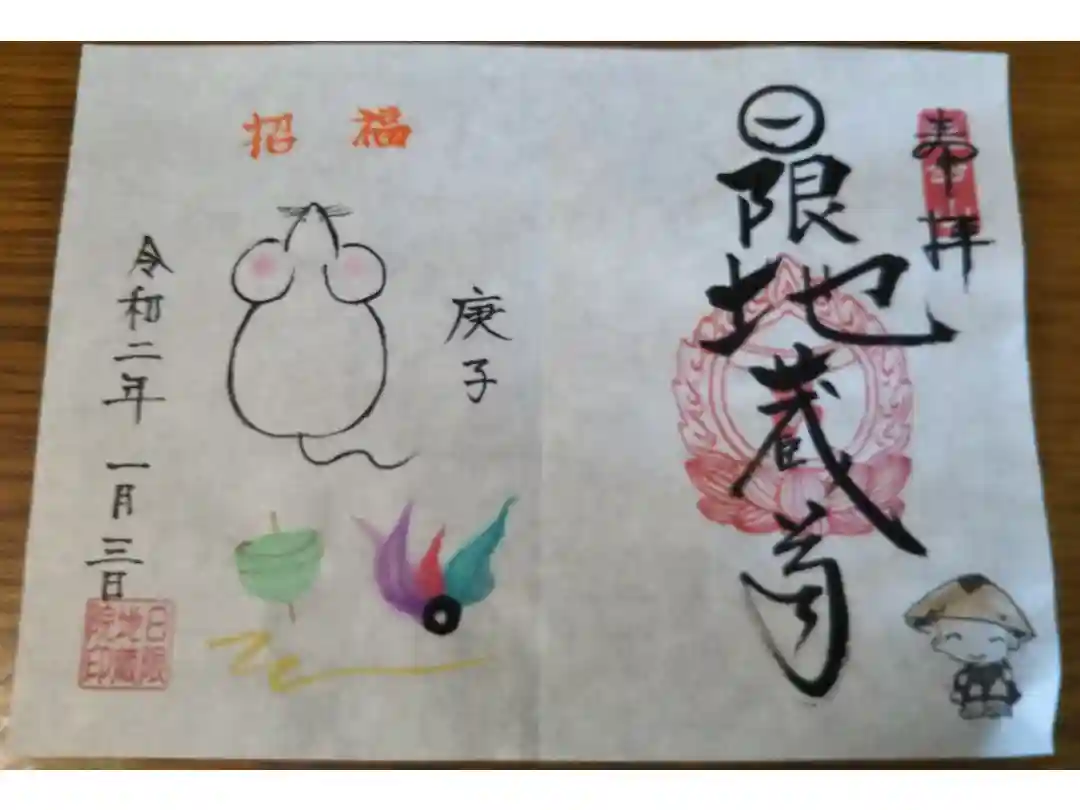 奉拝
日限地蔵尊
招福
庚子
令和二年 一月三日
日限
地蔵
院印